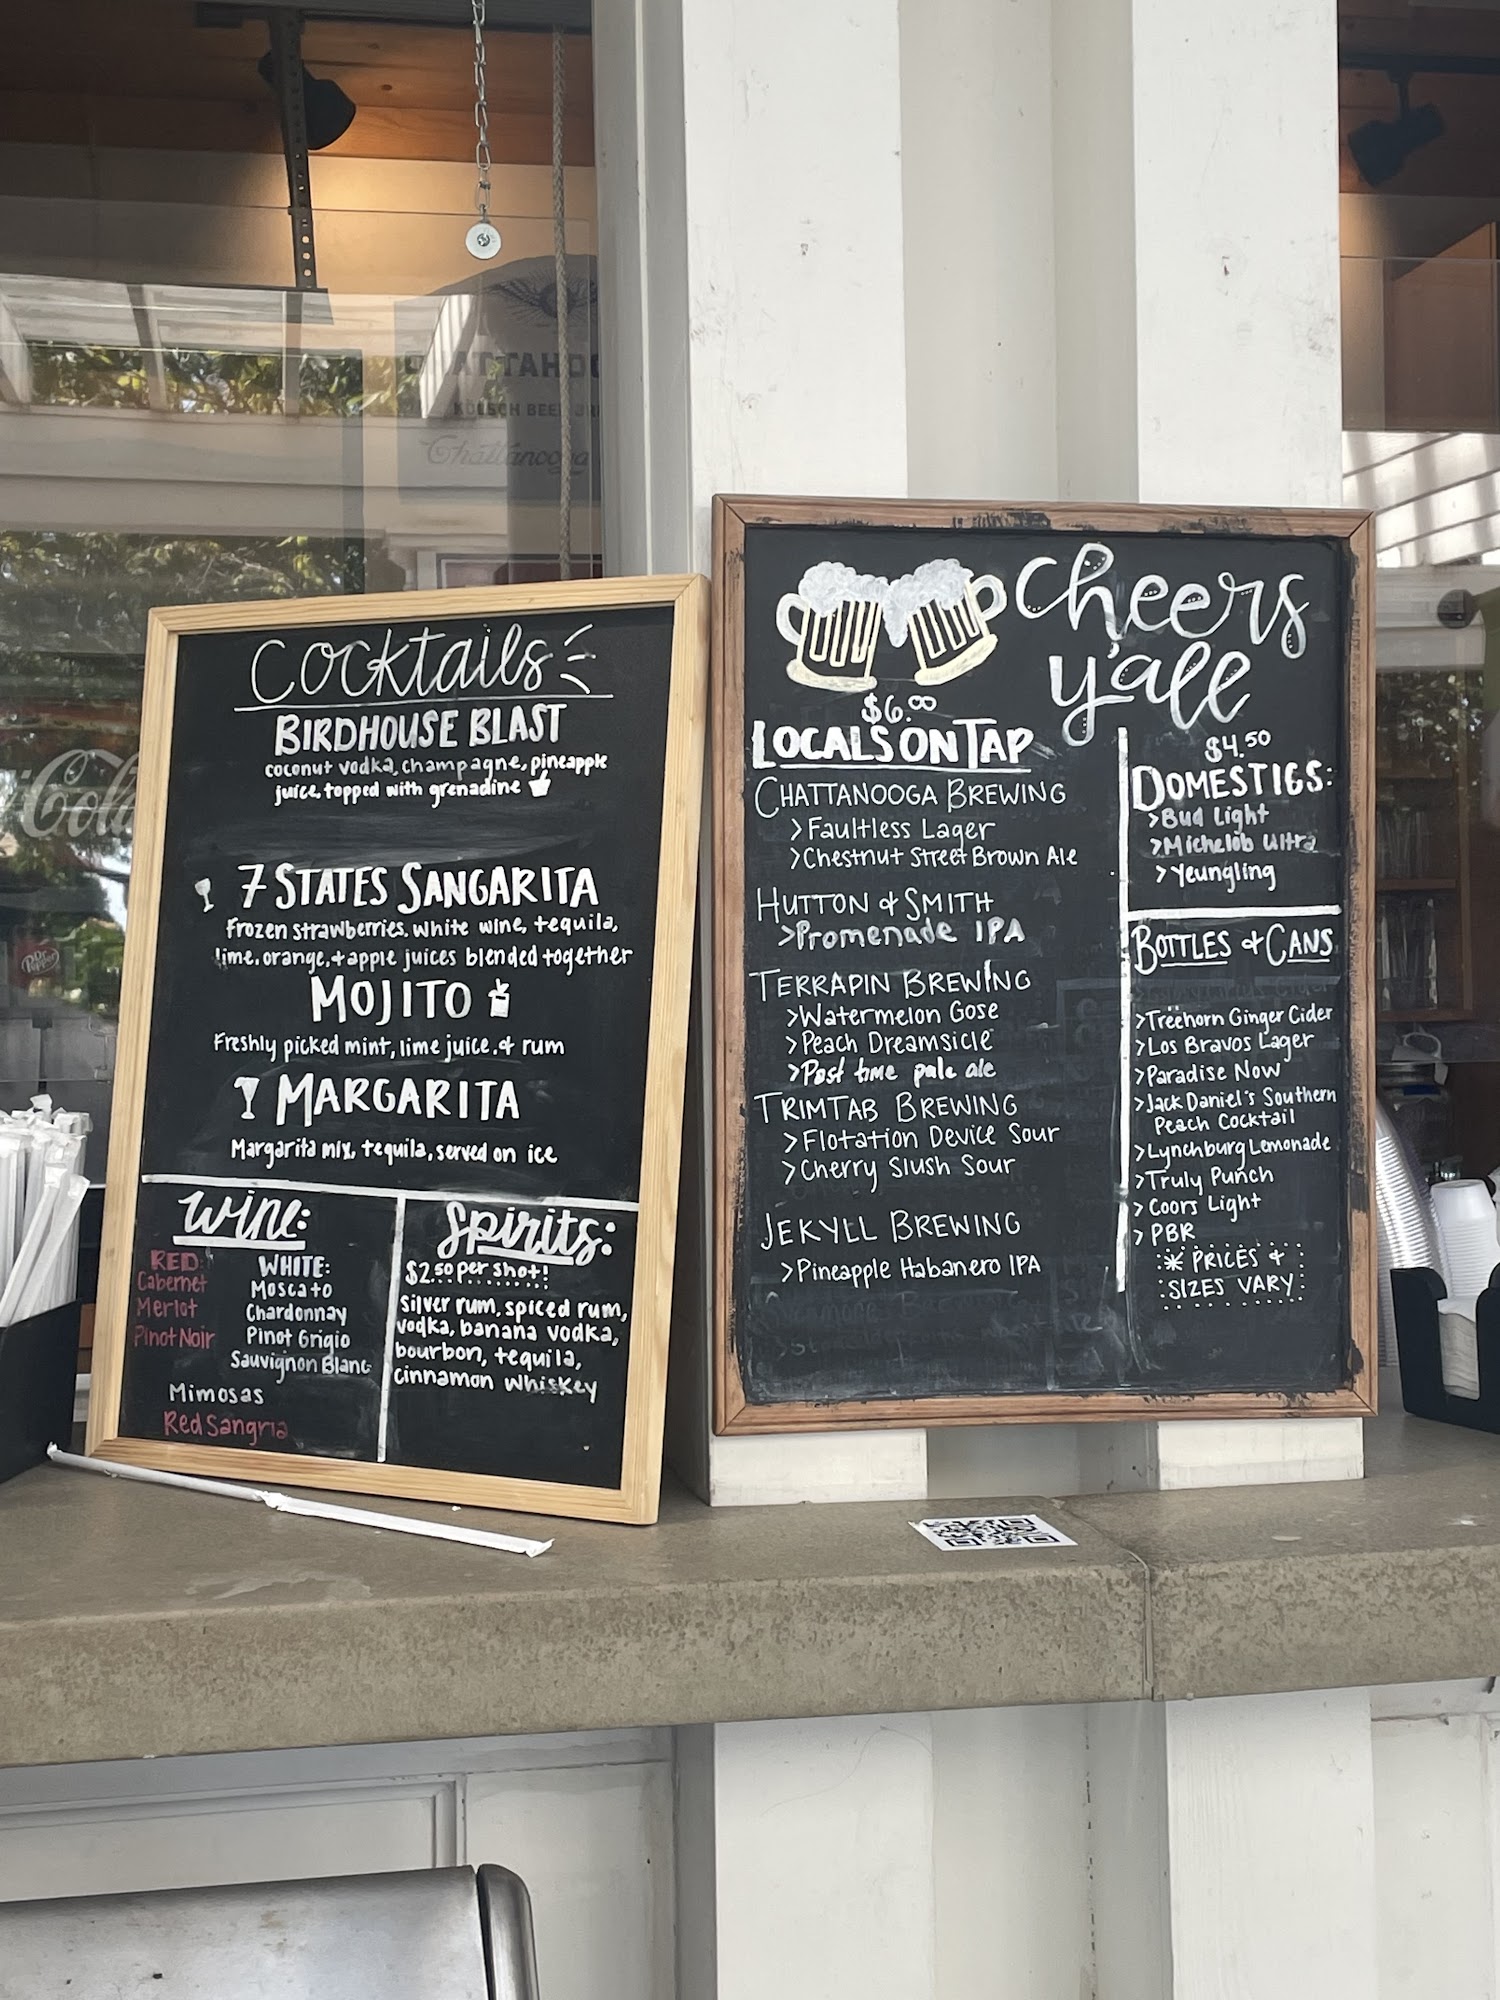 ATTAHOO
KÖLSCH BEE
Chattanooga
Cola
Dr Pepper
Cocktails
BIRDHOUSE BLAST
coconut vodka, champagne, pineapple
juice, topped with grenadine
7 STATES SANGARITA
Frozen strawberries, white wine, tequila,
lime, orange, + apple juices blended together
MOJITO
Freshly picked mint, lime juice, & rum
MARGARITA
Margarita mix, tequila, served on ice
Wine:
RED:
Cabernet
Merlot
Pinot Noir
WHITE:
Moscato
Chardonnay
Pinot Grigio
Sauvignon Blanc
Mimosas
Red Sangria
Spirits:
$2.50 per shot!
Silver rum, spiced rum,
vodka, banana vodka,
bourbon, tequila,
cinnamon whiskey
Cheers
y'all
$6.00
LOCALS ON TAP
CHATTANOOGA BREWING
>Faultless Lager
>Chestnut Street Brown Ale
HUTTON & SMITH
>Promenade IPA
TERRAPIN BREWING
>Watermelon Gose
>Peach Dreamsicle
>Past time pale ale
TRIMTAB BREWING
>Flotation Device Sour
>Cherry Slush Sour
JEKYLL BREWING
>Pineapple Habanero IPA
$4.50
DOMESTICS:
>Bud Light
>Michelob Ultra
>Yeungling
BOTTLES & CANS
>Treehorn Ginger Cider
>Los Bravos Lager
>Paradise Now
>Jack Daniel's Southern
Peach Cocktail
>Lynchburg Lemonade
>Truly Punch
>Coors Light
>PBR
* PRICES &
SIZES VARY